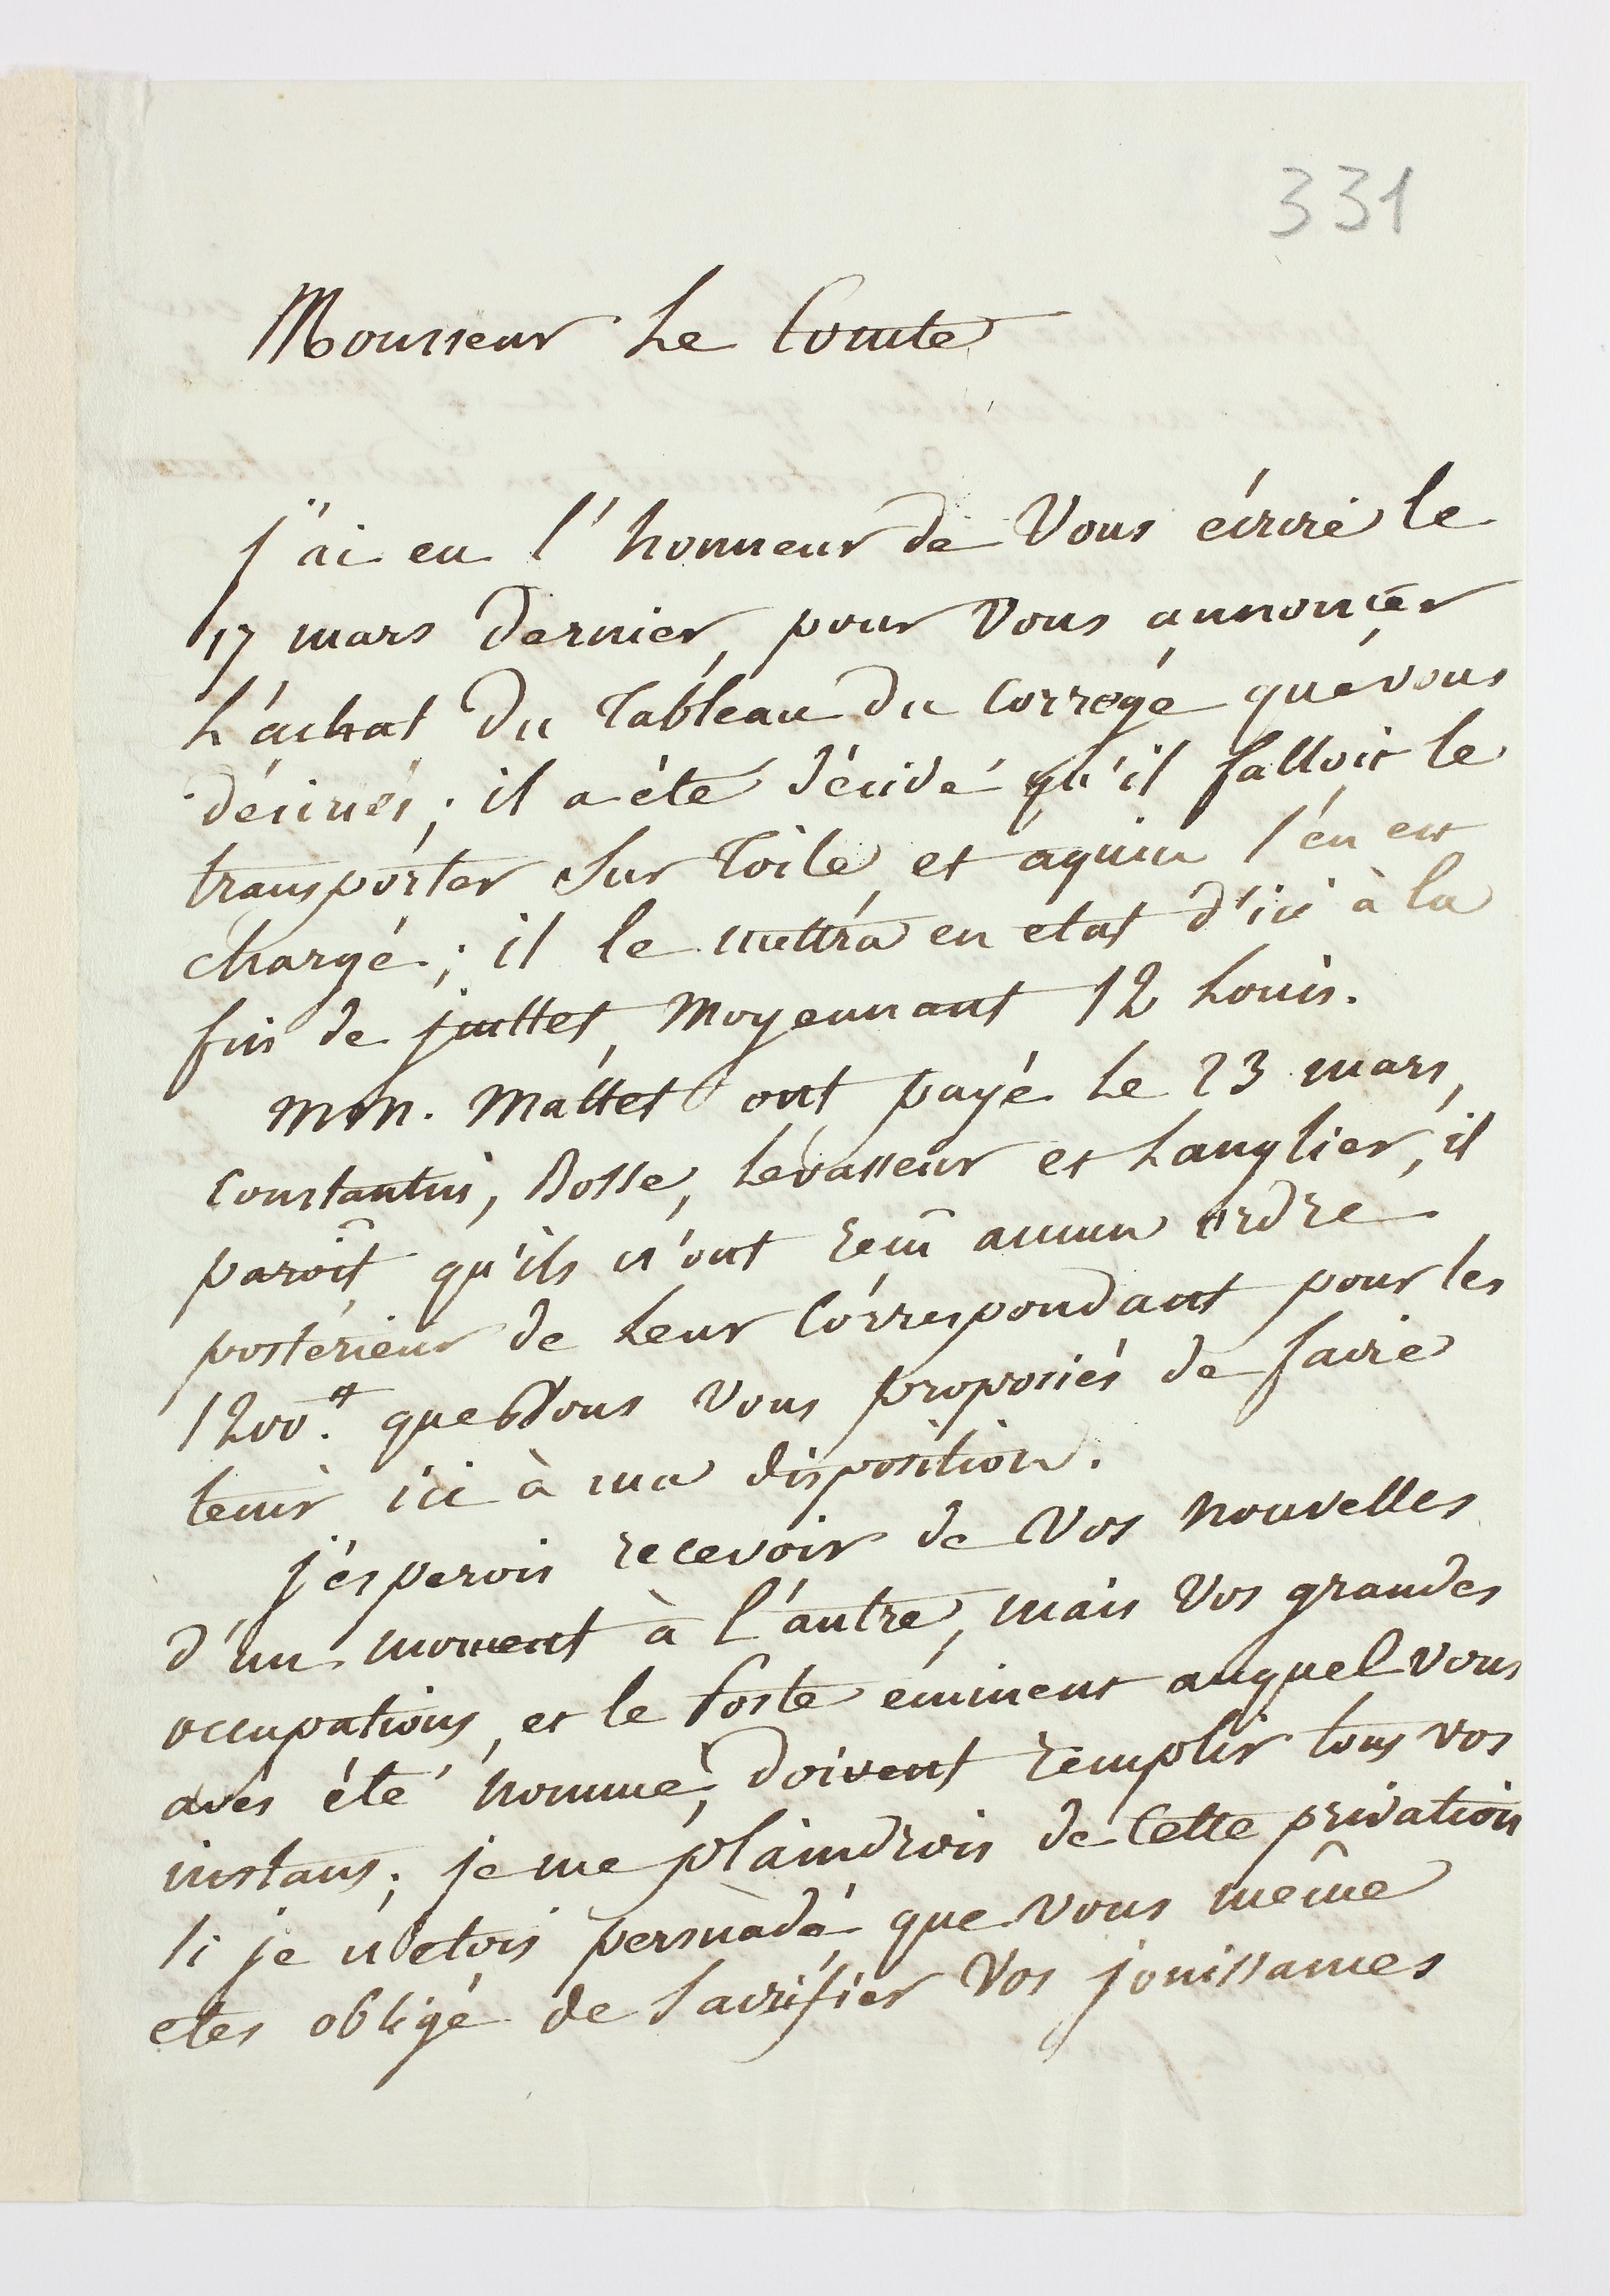 331
Monsieur Le Comte
j'ai eu l'honneur de Vous écrire le
17 mars dernier, pour Vous annoncer
L'achat du Tableau du Correge que vous
désiriés; il a été décidé qu'il falloit le
transporter Sur Toile, et aquin s'en est
chargé; il le mettra en etat d'ici à la
fin de juillet, Moyennant 12 Louis.
MM. Mallet ont payé Le 23 mars,
Constantin, Bosse, Levasseur et Langlier, il
paroît qu'ils n'ont reçu aucun ordre
posterieur de Leur Correspondant pour les
1200.ᵗᵗ que Vous Vous proposiés de faire
tenir ici à ma disposition.
j'esperois recevoir de Vos nouvelles
d'un moment à l'autre, mais Vos grandes
occupations, et le Poste éminent auquel vous
avés été nommé, doivent remplir tous vos
instans; je me plaindrois de Cette privation
Si je n'etois persuadé que vous même
etes obligé de Sacrifier Vos jouissances